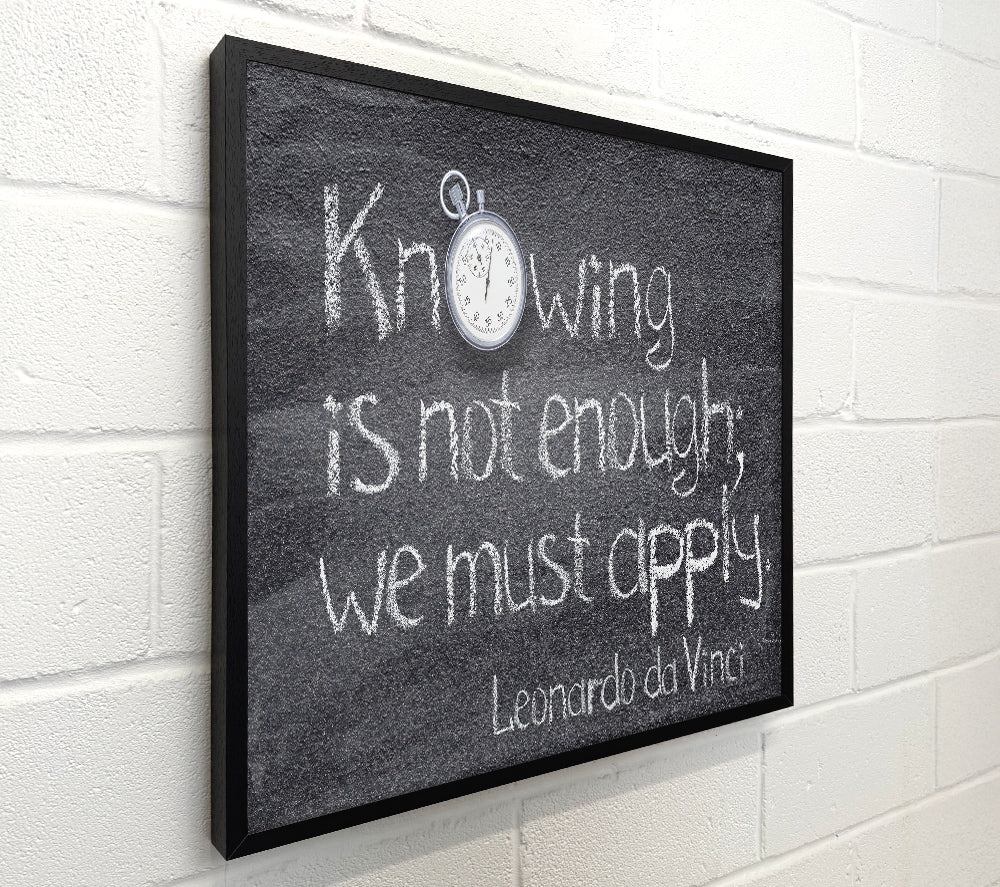 Knowing
is not enough;
we must apply.
Leonardo da Vinci